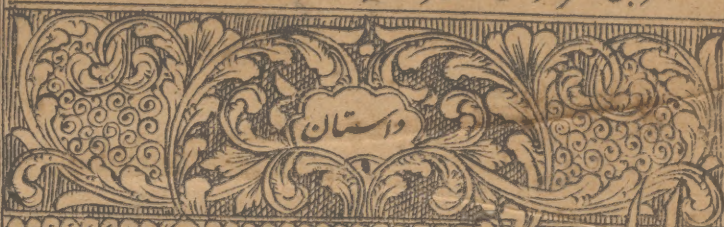 داستان